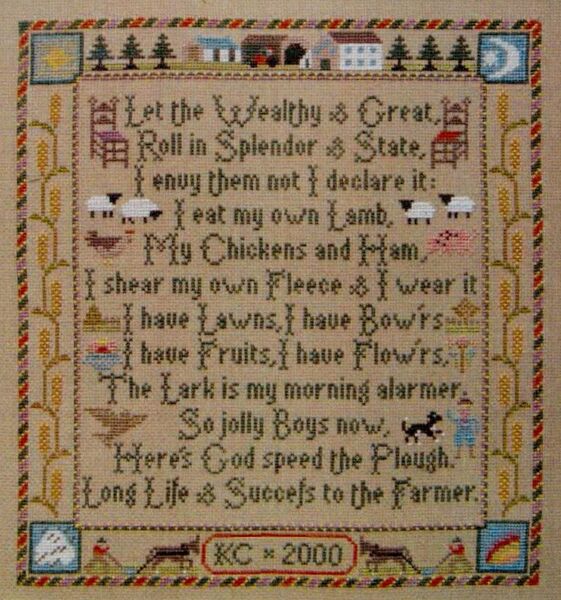 Let the Wealthy & Great,
Roll in Splendor & State,
I envy them not I declare it:
I eat my own Lamb,
My Chickens and Ham,
I shear my own Fleece & I wear it
I have Lawns, I have Bow'rs
I have Fruits, I have Flow'rs,
The Lark is my morning alarmer,
So jolly Boys now,
Here's God speed the Plough.
Long Life & Succeſs to the Farmer.
KC × 2000